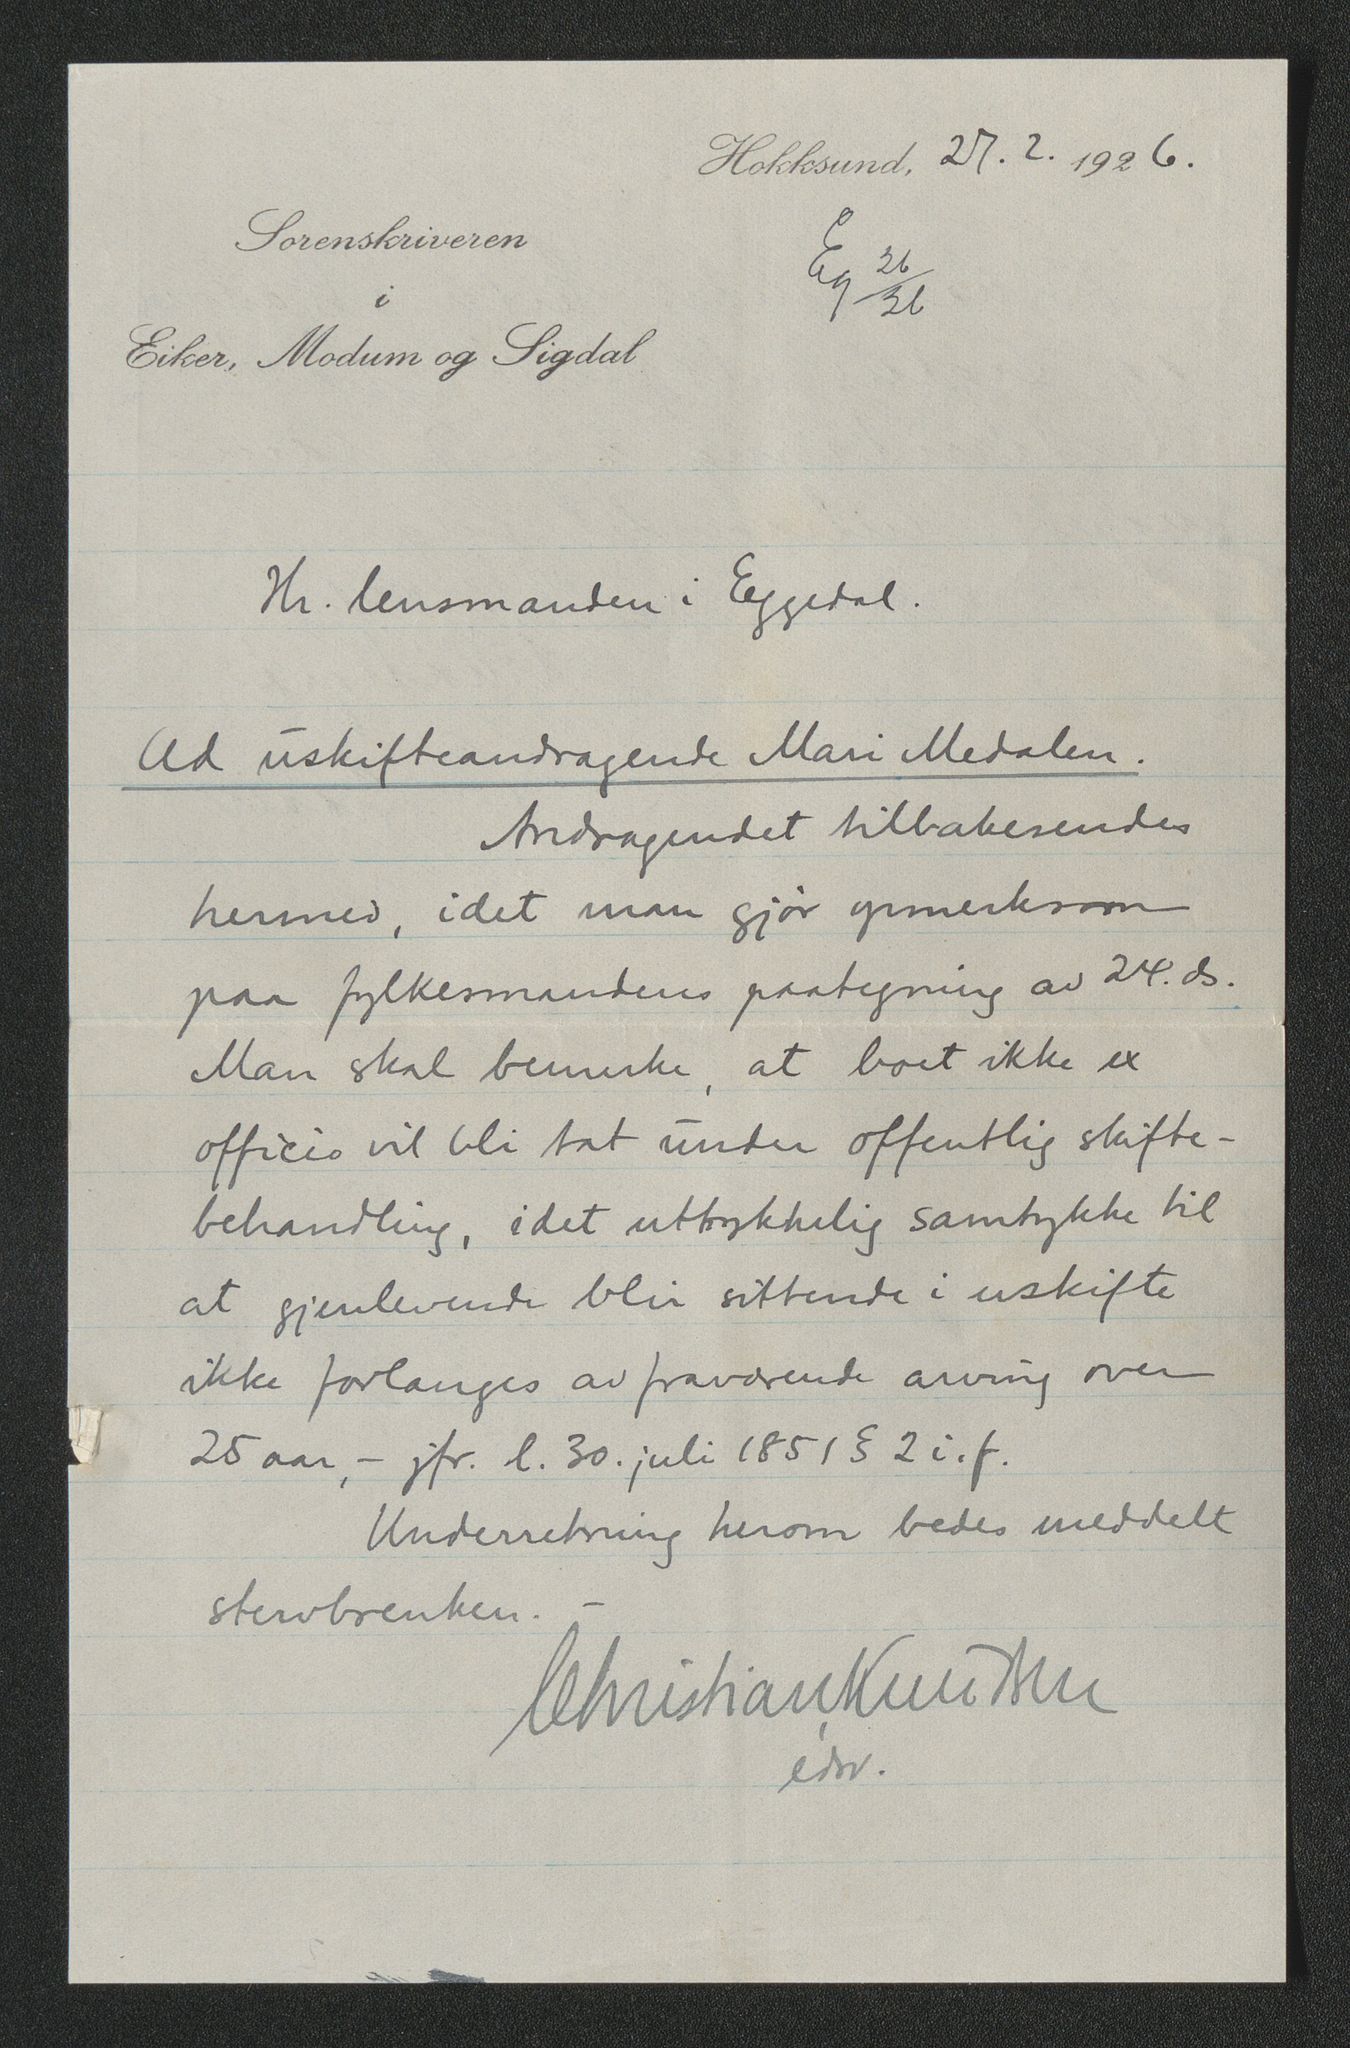 Hokksund, 27. 2. 1926.
Sorenskriveren
i
Eiker, Modum og Sigdal
Eg 26/26
Hr. lensmanden i Eggedal.
Ad uskifteandragende Mari Medalen.
Andragendet tilbakesendes
hermed, idet man gjør opmerksom
paa fylkesmandens paategning av 24. ds.
Man skal bemerke, at boet ikke ex
officio vil bli tat under offentlig skifte-
behandling, idet uttrykkelig samtykke til
at gjenlevende blir sittende i uskifte
ikke forlanges av fraværende arving over
25 aar, - jfr. l. 30. juli 1851 § 2 i. f.
Underretning herom bedes meddelt
stervboenken. -
Christian Knudsen
edsv.